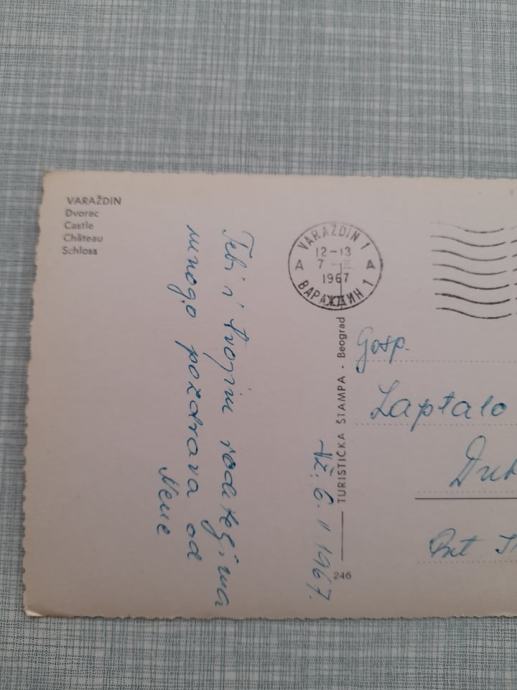 VARAŽDIN
Dvorac
Castle
Château
Schloss
Tebi i tvojim roditeljima
mnogo pozdrava od
Nene
VARAŽDIN 1
12-13
A 7 A
1967
ВАРАЖДИН 1
TURISTIČKA ŠTAMPA - Beograd
246
6. II 1967.
Gosp.
Laptalo